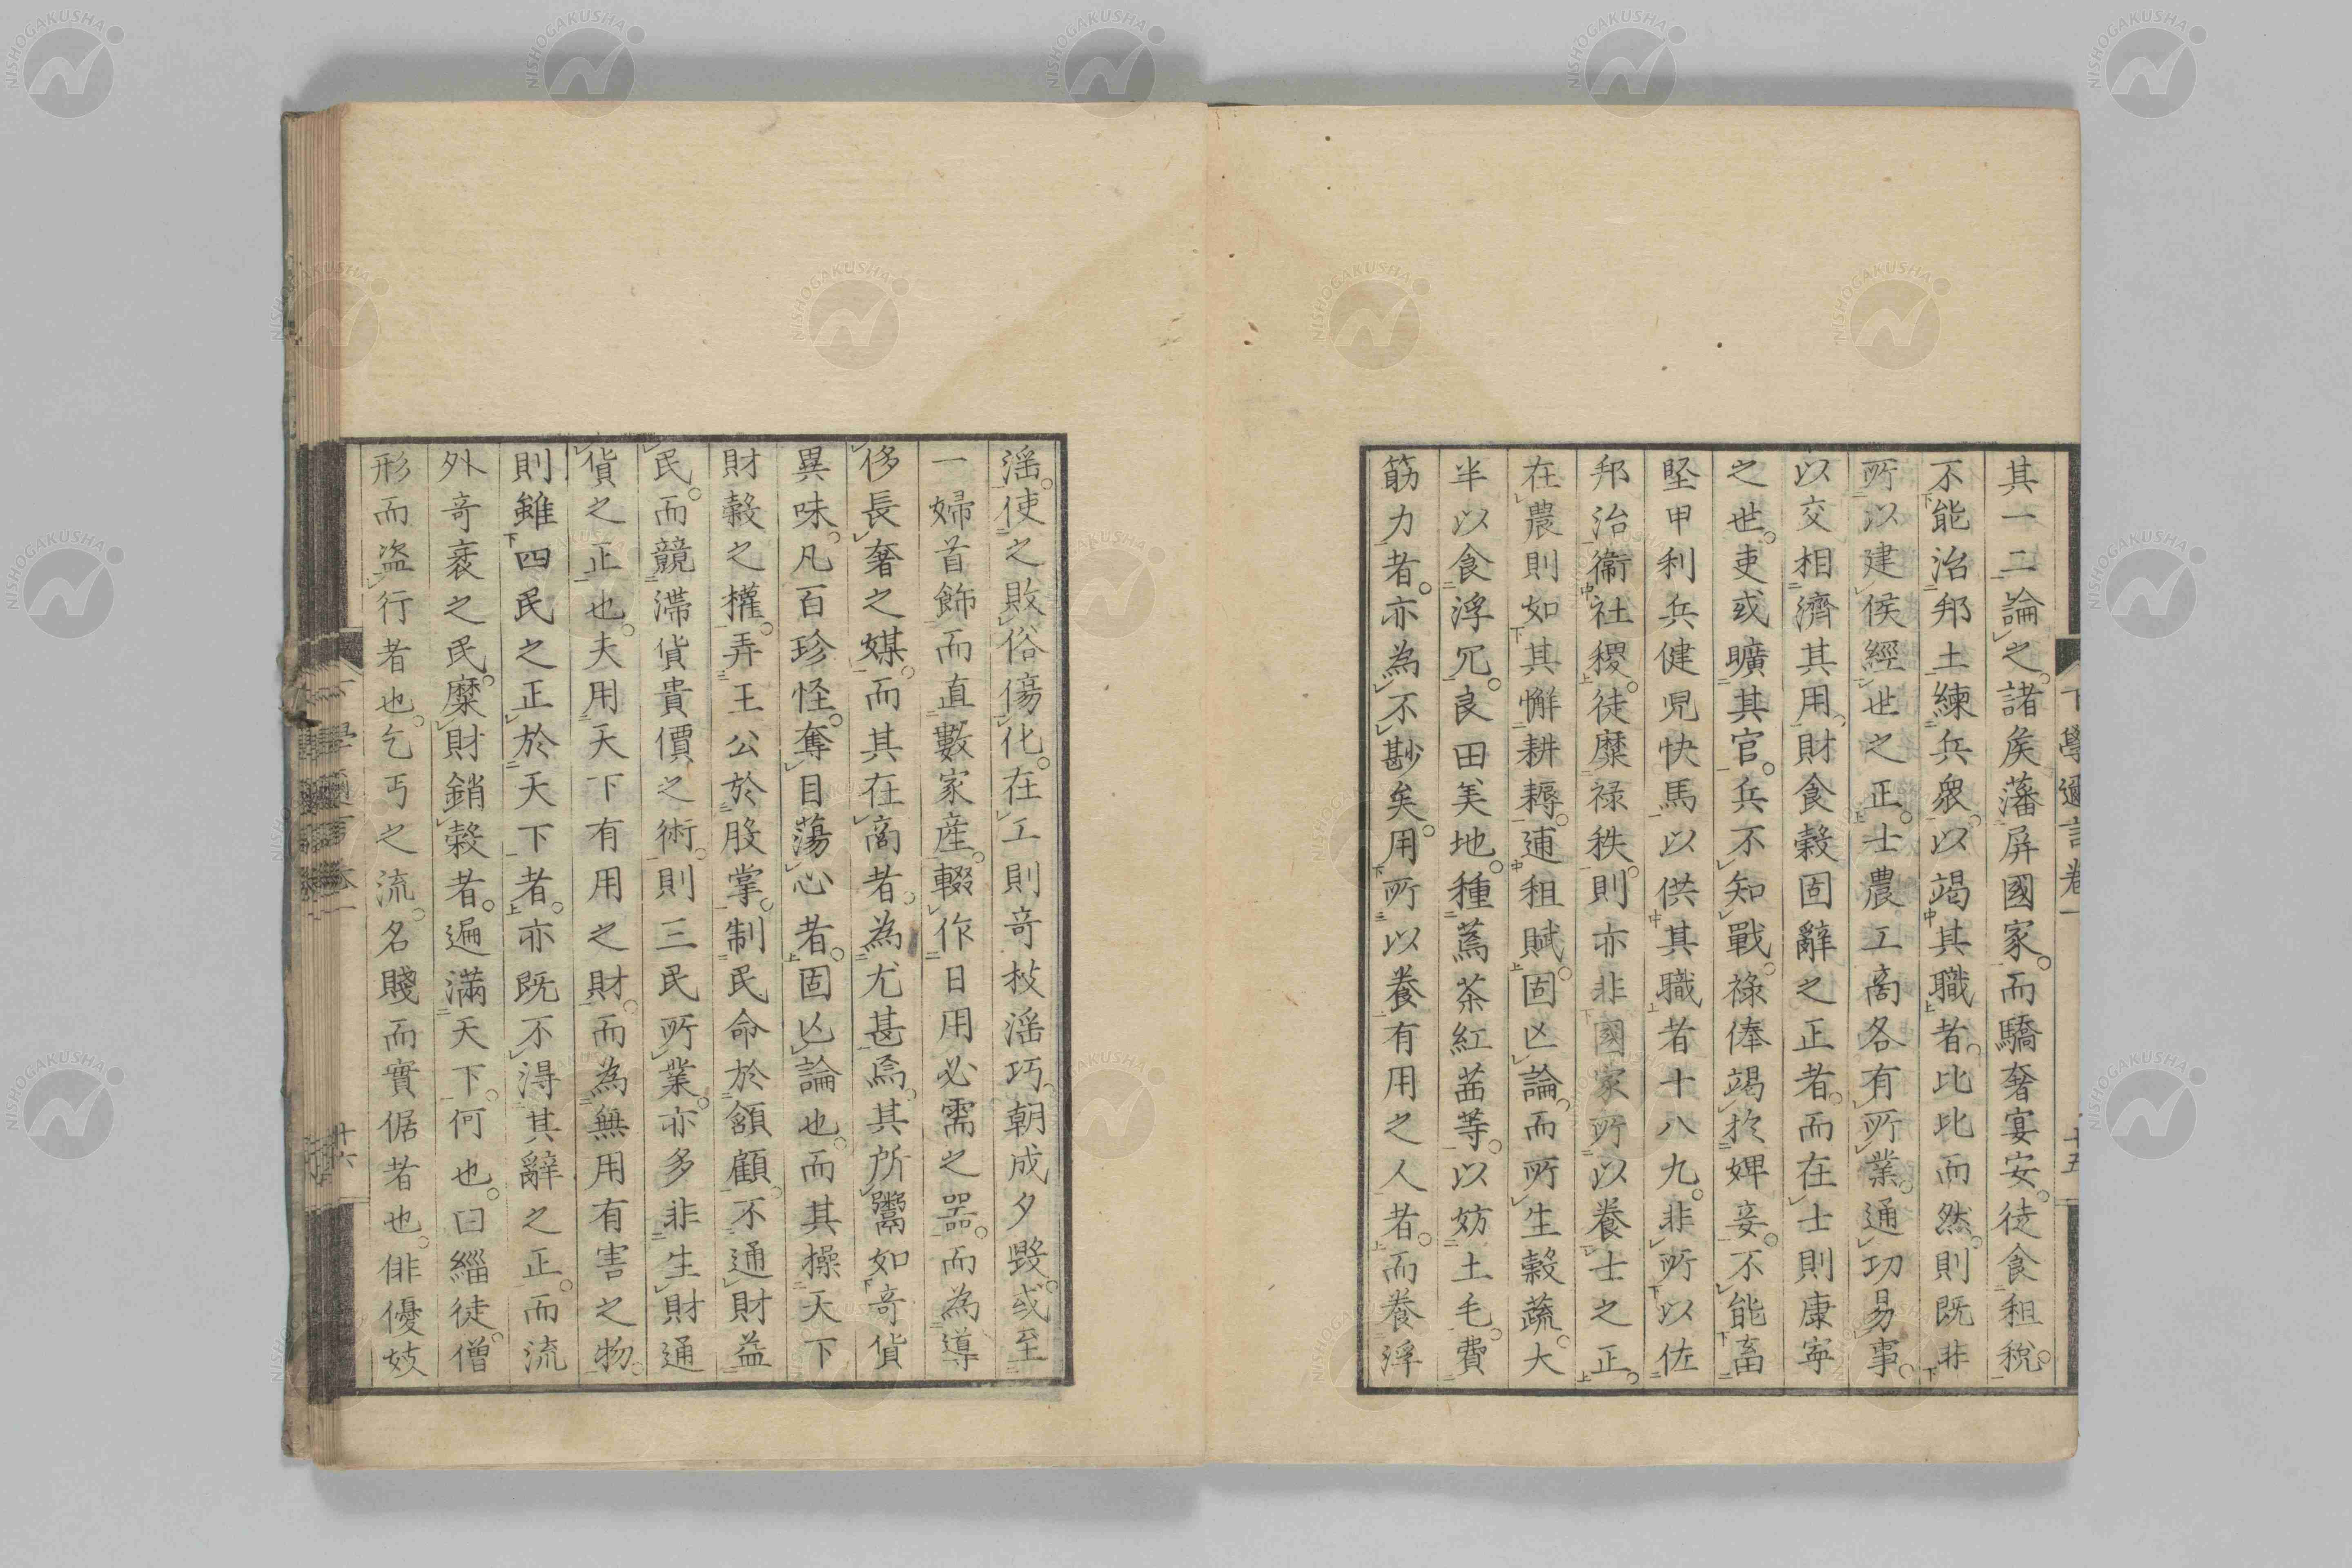 下學邇言卷一
十五
其一二論之。諸矦藩屏國家。而驕奢宴安。徒食租稅。
不能治邦土練兵衆。以竭其職者。比比而然。則既非
所以建侯經世之正。士農工商各有所業。通功易事。
以交相濟其用。財食穀固辭之正者。而在士則康寧
之世。吏或曠其官。兵不知戰。祿俸竭於婢妾。不能畜
堅甲利兵健児快馬。以供其職者十八九。非所以佐
邦治衞社稷。徒糜祿秩。則亦非國家所以養士之正。
在農則如其懈耕耨。逋租賦。固亾論。而所生穀蔬。大
半以食浮冗。良田美地。種蔫茶紅茜等。以妨土毛。費
筋力者。亦為不尠矣。用所以養有用之人者。而養浮
滛。使之敗俗傷化。在工則奇技滛巧。朝成夕毀。或至
一婦首飾而直數家產。輟作日用必需之器。而為導
侈長奢之媒。而其在商者。為尤甚焉。其所鬻如奇貨
異味。凡百珍怪。奪目蕩心者。固亾論也。而其操天下
財穀之權。弄王公於股掌。制民命於頷顧。不通財益
民。而競滯貨貴價之術。則三民所業。亦多非生財通
貨之正也。夫用天下有用之財。而為無用有害之物。
則雖四民之正於天下者。亦既不得其辭之正。而流
外奇衺之民。糜財銷穀者。遍滿天下。何也。曰緇徒。僧
形而盗行者也。乞丐之流。名賤而實倨者也。俳優妓
下學邇言卷一
十六
NISHOGAKUSHA